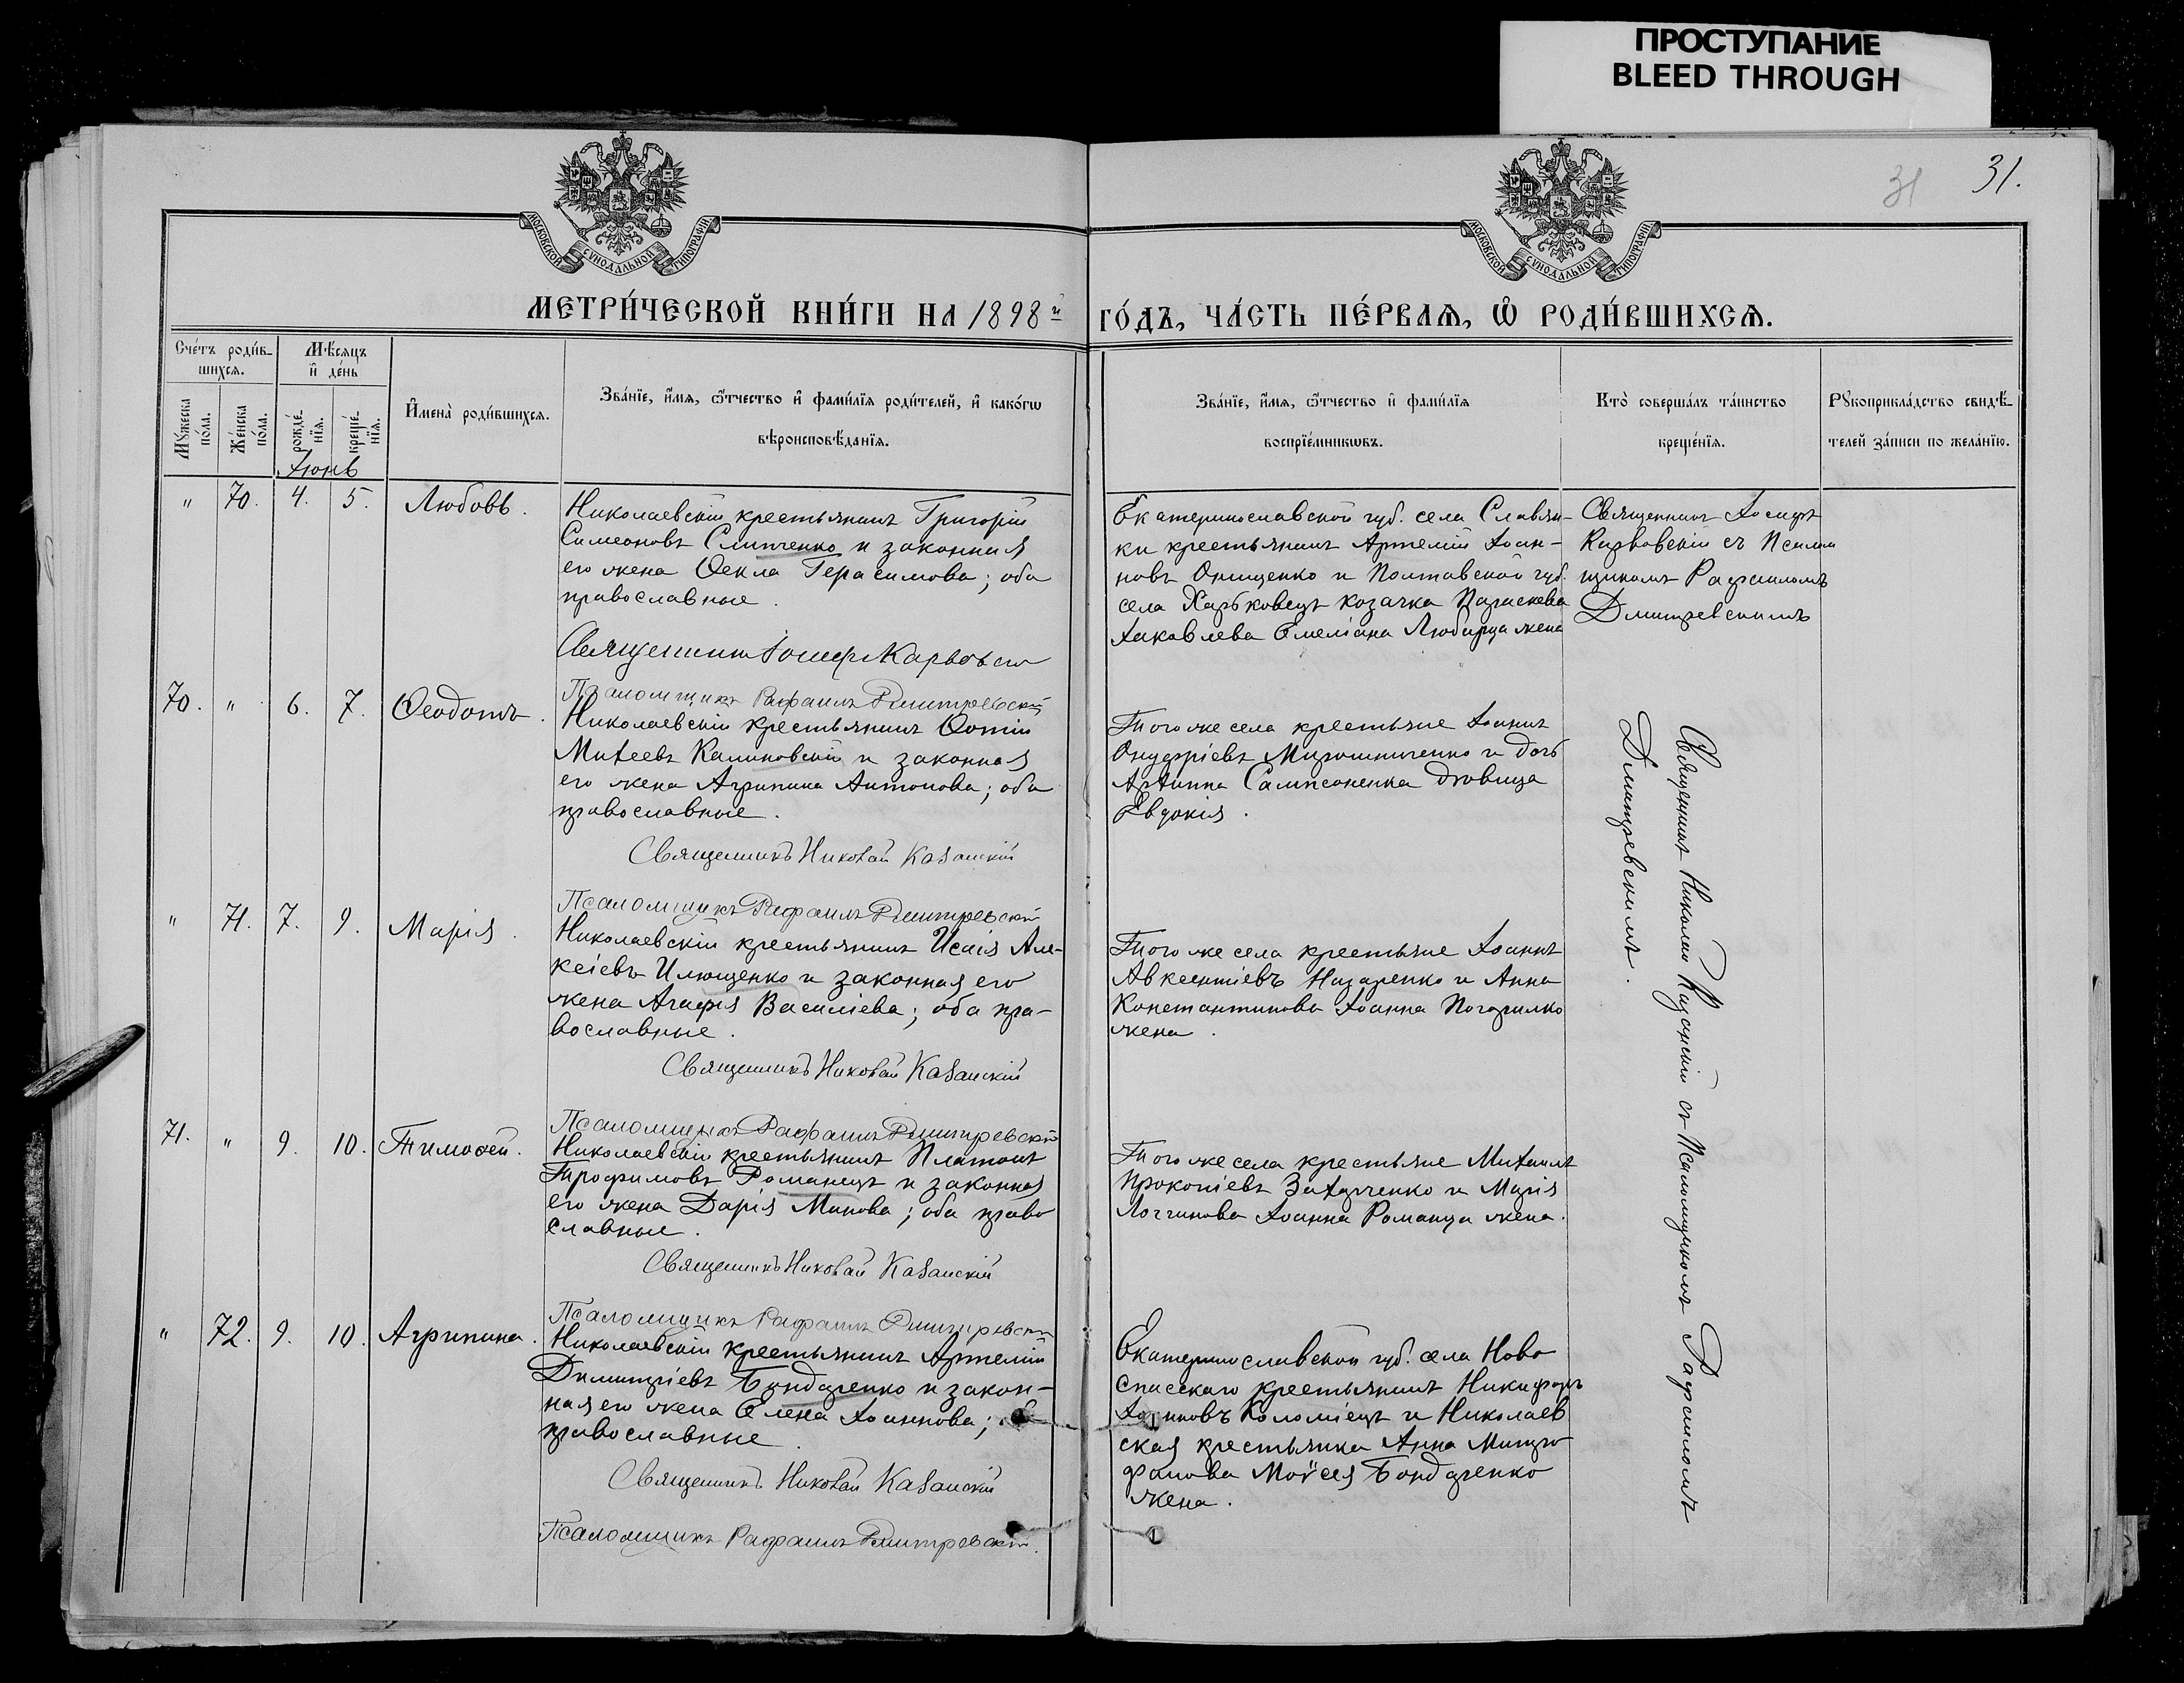 ПРОСТУПАНИЕ
BLEED THROUGH
31 31.
МОСКОВСКОЙ СѴНОДАЛЬНОЙ ТИПОГРАФІИ
МОСКОВСКОЙ СѴНОДАЛЬНОЙ ТИПОГРАФІИ
МЕТРИ́ЧЕСКОЙ КНИ́ГИ НА 1898й ГО́ДЪ, ЧА́СТЬ ПЕ́РВАѦ, Ѡ РОДИ́ВШИХСѦ.
Сче́тъ роди́в-
шихсѧ.
Мѣ́сяцъ
и де́нь
Мꙋ́жеска
по́ла.
Же́нска
по́ла.
рожде́-
нїѧ.
креще́-
нїѧ.
Імена̀ роди́вшихсѧ.
Зва́нїе, и́мѧ, ѻ҆́тчество и фами́лїѧ роди́телей, и како́гѡ
вѣроисповѣ́данїѧ.
Зва́нїе, и́мѧ, ѻ҆́тчество и фами́лїѧ
воспрїе́мникѡвъ.
Кто̀ соверша́лъ та́инство
креще́нїѧ.
Рꙋкоприкла́дство свидѣ́-
телей за́писи по жела́нїю.
Іюнь
" 70. 4. 5. Любовь.
Николаевскій крестьянинъ Григорій
Симеоновъ Слипченко и законная
его жена Ѳекла Герасимова; оба
православные.
Священникъ Іосифъ Карвовскій
Псаломщикъ Рафаилъ Дмитревскій
Екатеринославской губ. села Славян-
ки крестьянинъ Артемій Іоан-
новъ Онищенко и Полтавской губ.
села Харьковецъ козачка Параскева
Іаковлева Емеліана Любарца жена
Священникъ Іосифъ
Карвовскій съ Псалом
щикомъ Рафаиломъ
Дмитревскимъ
70. " 6. 7. Ѳеодотъ.
Николаевскій крестьянинъ Ѳотій
Михеевъ Калиновскій и законная
его жена Агрипина Антонова; оба
православные.
Священникъ Николай Казанскій
Псаломщикъ Рафаилъ Дмитревскій
Того же села крестьяне Іоаннъ
Онуфріевъ Мирошниченко и дочь
Архиппа Сампсоненка дѣвица
Евдокія.
Священникъ Николай Казанскій съ Псаломщикомъ Рафаиломъ
Дмитревскимъ.
" 71. 7. 9. Марія.
Николаевскій крестьянинъ Исаія Але-
ксіевъ Илющенко и законная его
жена Агафія Василіева; оба пра-
вославные.
Священникъ Николай Казанскій
Псаломщикъ Рафаилъ Дмитревскій
Того же села крестьяне Іоаннъ
Авксентіевъ Назаренко и Анна
Константинова Іоанна Погорилко
жена.
71. " 9. 10. Тимоѳей.
Николаевскій крестьянинъ Платонъ
Трофимовъ Романецъ и законная
его жена Дарія Минова; оба право
славные.
Священникъ Николай Казанскій
Псаломщикъ Рафаилъ Дмитревскій
Того же села крестьяне Михаилъ
Прокопіевъ Захарченко и Марія
Логгинова Іоанна Романца жена.
" 72. 9. 10. Агрипина.
Николаевскій крестьянинъ Артемій
Димитріевъ Бондаренко и закон-
ная его жена Елена Іоаннова;
православные.
Священникъ Николай Казанскій
Псаломщикъ Рафаилъ Дмитревскій.
Екатеринославской губ. села Ново
спасскаго крестьянинъ Никифоръ
Іоанновъ Коломіецъ и Николаев
ская крестьянка Анна Митро
фанова Моѵсея Бондаренко
жена.